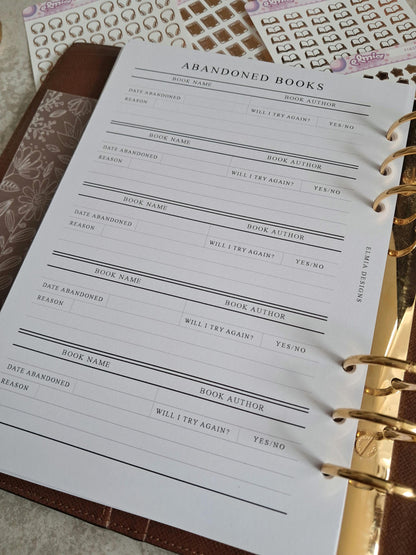 elmia
elmia
ABANDONED BOOKS
BOOK NAME BOOK AUTHOR
DATE ABANDONED WILL I TRY AGAIN? YES/NO
REASON
BOOK NAME BOOK AUTHOR
DATE ABANDONED WILL I TRY AGAIN? YES/NO
REASON
BOOK NAME BOOK AUTHOR
DATE ABANDONED WILL I TRY AGAIN? YES/NO
REASON
BOOK NAME BOOK AUTHOR
DATE ABANDONED WILL I TRY AGAIN? YES/NO
REASON
BOOK NAME BOOK AUTHOR
DATE ABANDONED WILL I TRY AGAIN? YES/NO
REASON
ELMIA DESIGNS